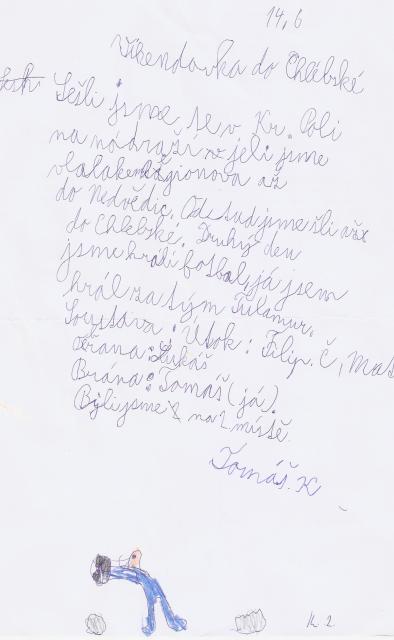 14,6
Víkendovka do Chlébské
Sešli jsme se v Kr. Poli
na nádraží jeli jsme
vlakem Regionova až
do Nedvědic. Odstud jsme šli až
do Chlébské. Druhý den
jsme hráli fotbal, já jsem
hrál za tým
Útok: Filip. Č, Mat
Lukáš
Brána: Tomáš (já).
Byli jsme na 2 místě
Tomáš. K